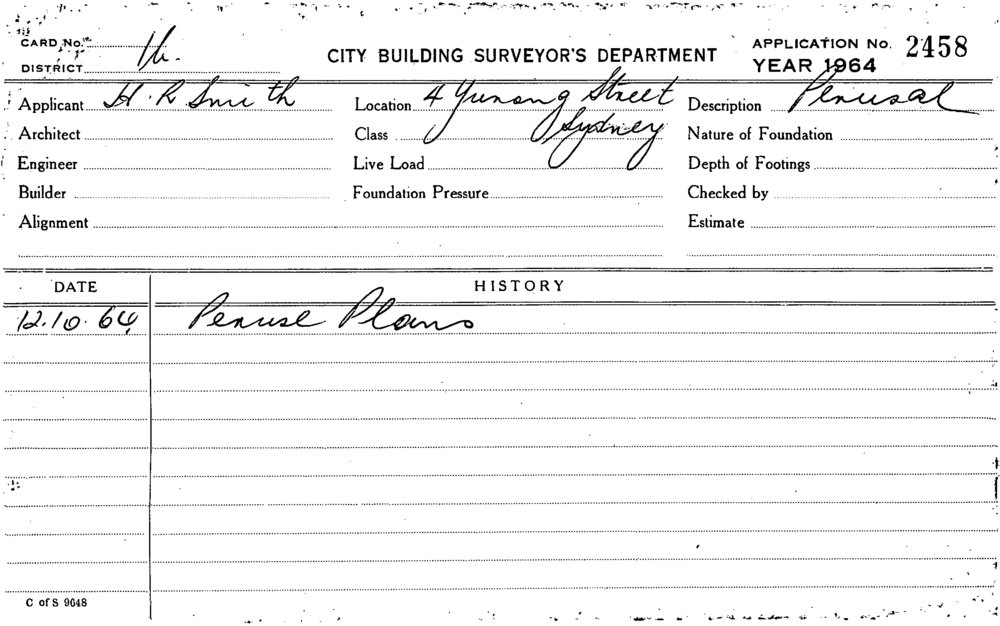 CARD No.
DISTRICT
CITY BUILDING SURVEYOR'S DEPARTMENT
APPLICATION No. 2458
YEAR 1964
Applicant H. R Smith
Location 4 Yurong Street
Sydney
Description Perusal
Architect
Class
Nature of Foundation
Engineer
Live Load
Depth of Footings
Builder
Foundation Pressure
Checked by
Alignment
Estimate
DATE
HISTORY
12.10.64 Peruse Plans
C of S 9648